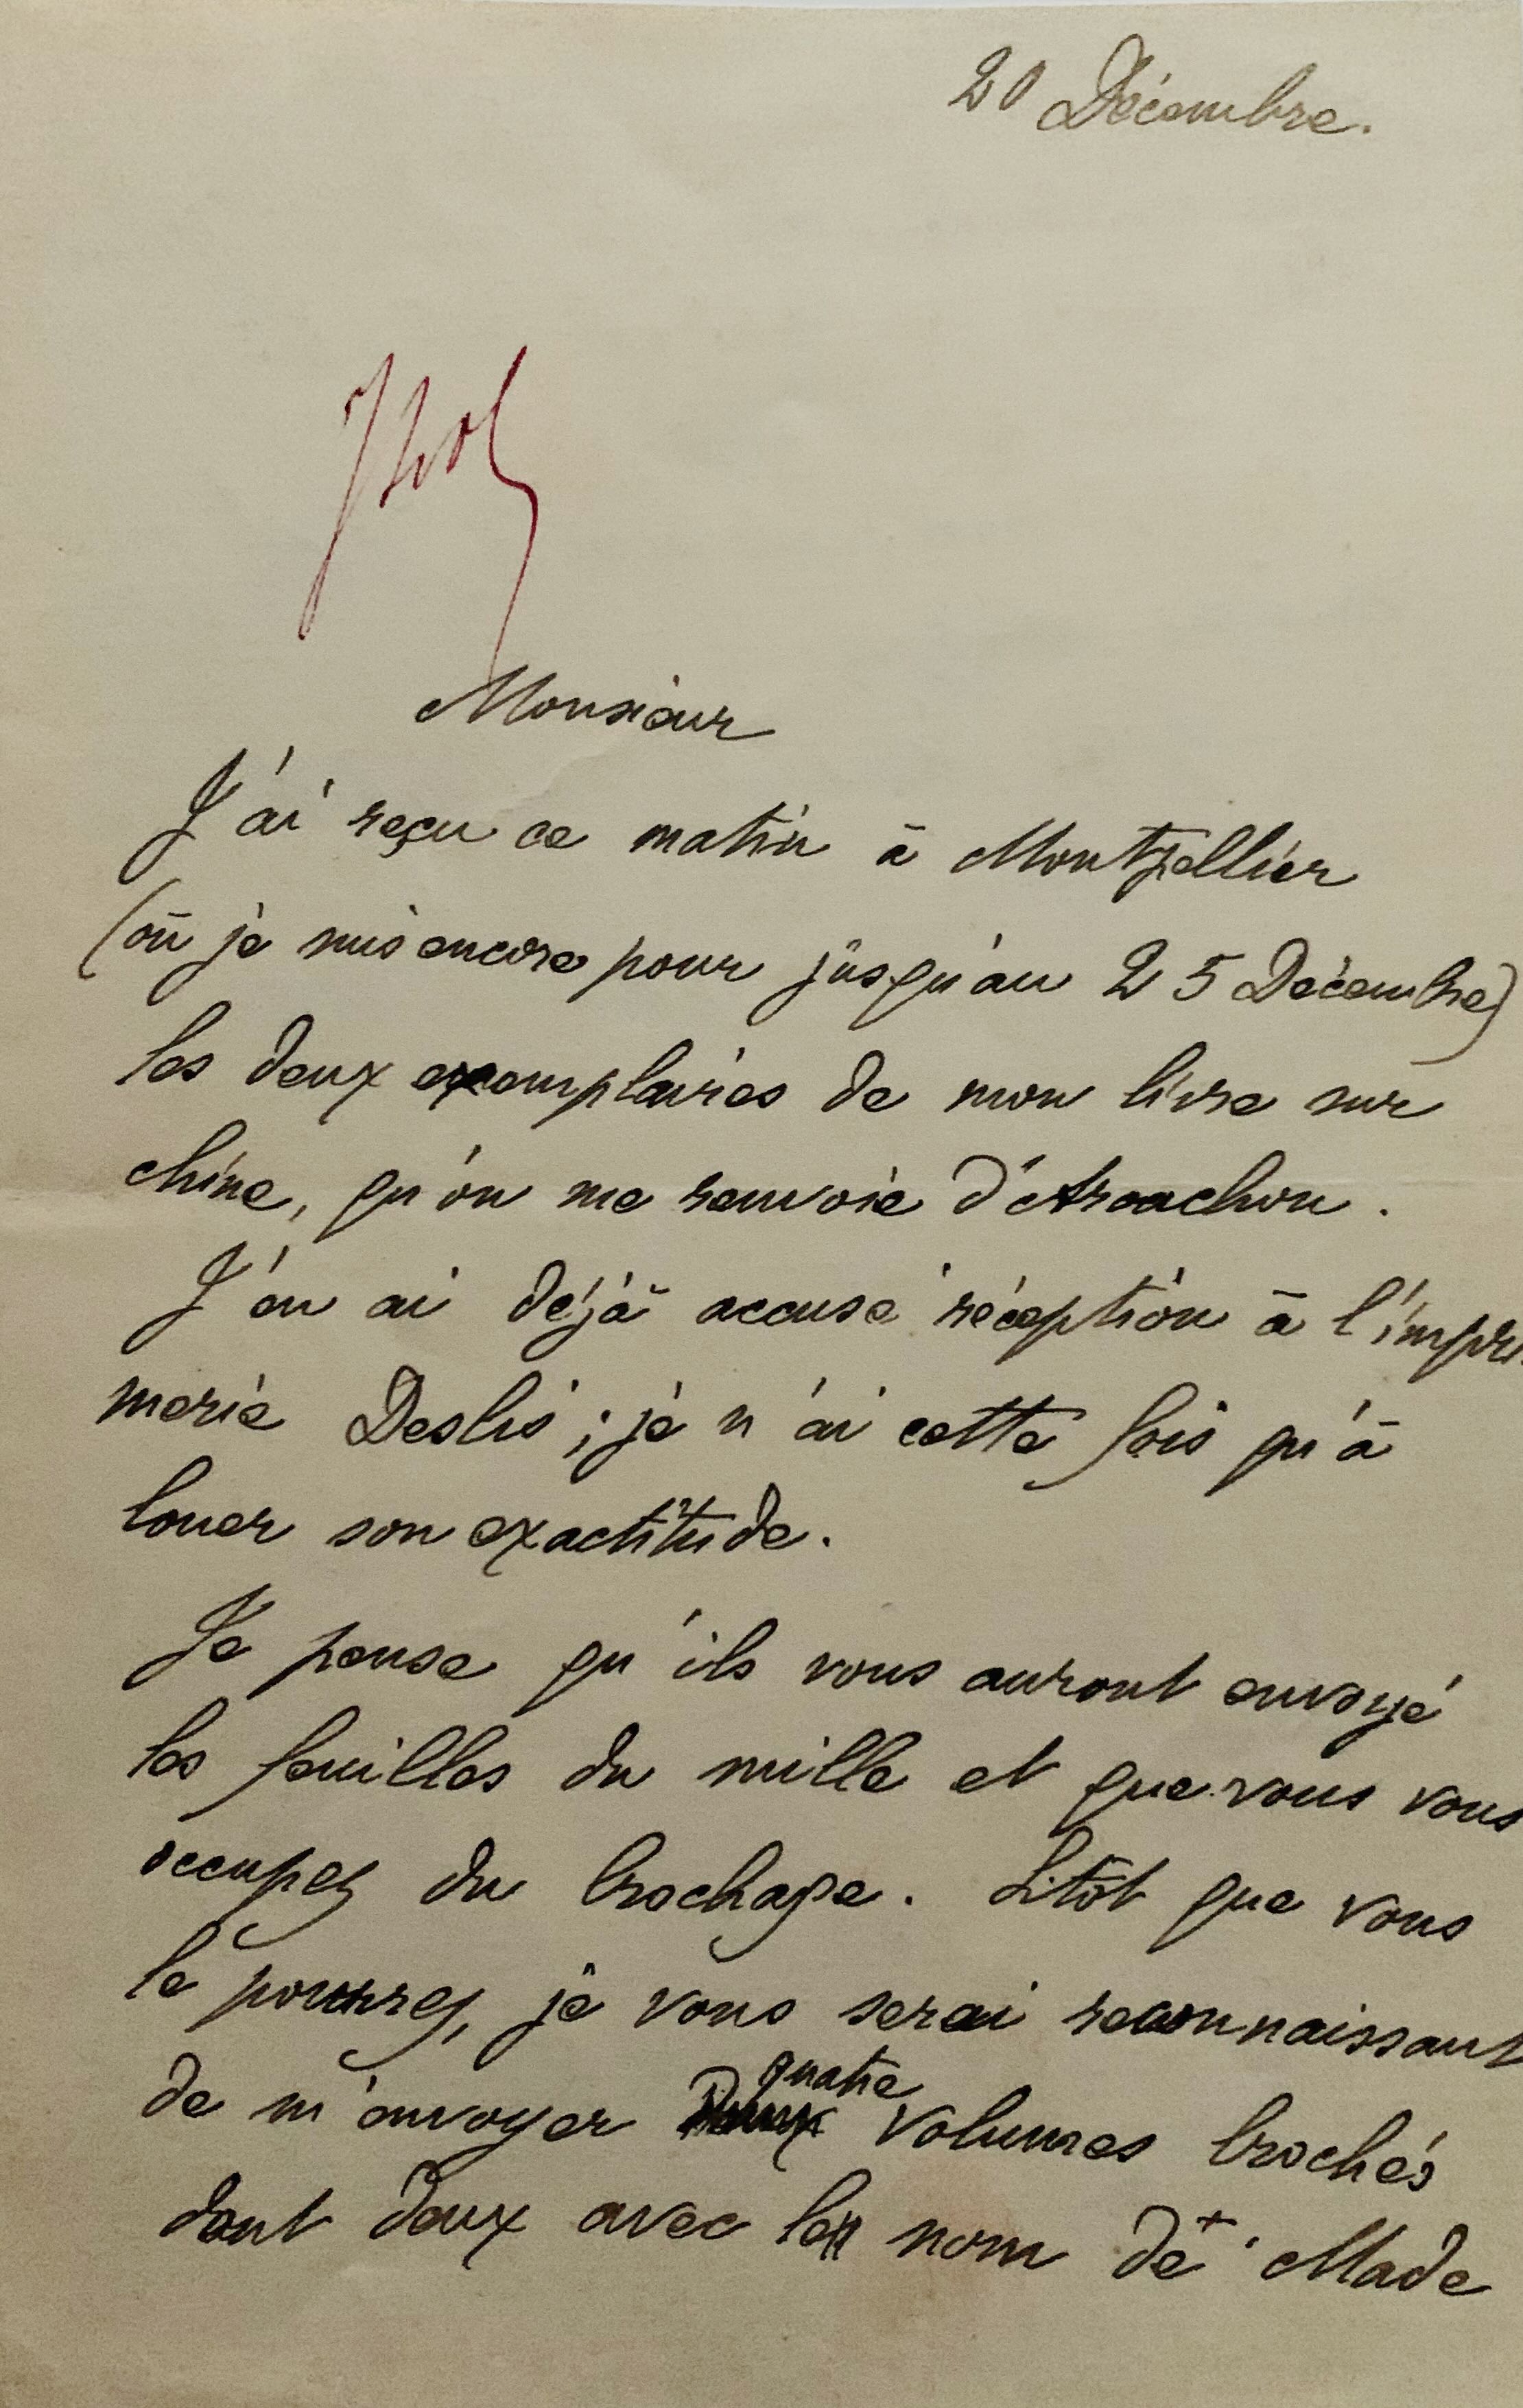 20 Décembre.
Monsieur
J'ai reçu ce matin à Montpellier
(où je suis encore pour jusqu'au 25 Décembre)
les deux exemplaires de mon livre sur
chine, qu'on me renvoie d'Arcachon.
J'en ai déjà accusé réception à l'impri-
merie Deslis ; je n'ai cette fois qu'à
louer son exactitude.
Je pense qu'ils vous auront envoyé
les feuilles du mille et que vous vous
occupez du brochage. Sitôt que vous
le pourrez, je vous serai reconnaissant
quatre
de m'envoyer deux volumes brochés
dont deux avec le nom de + Made